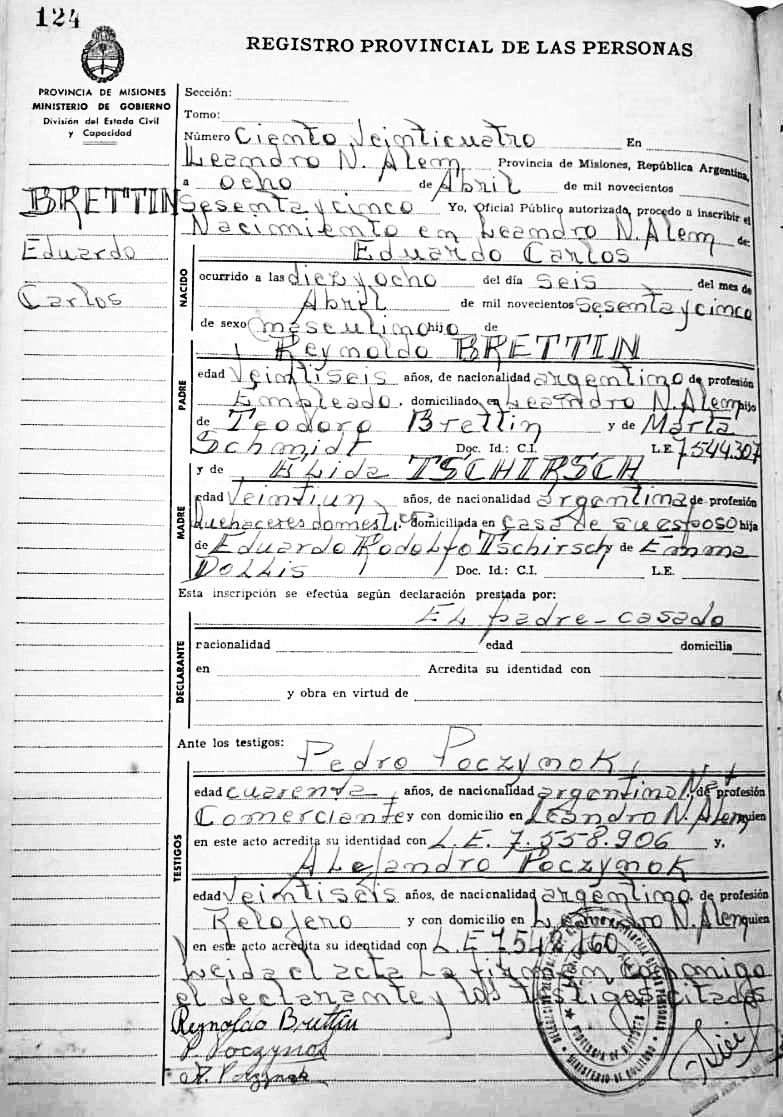 124
REGISTRO PROVINCIAL DE LAS PERSONAS
PROVINCIA DE MISIONES
MINISTERIO DE GOBIERNO
División del Estado Civil
y Capacidad
BRETTIN
Eduardo
Carlos
Sección:
Tomo:
Número Ciento Veinticuatro En
Leandro N. Alem Provincia de Misiones, República Argentina,
a ocho de Abril de mil novecientos
Sesenta y cinco Yo, Oficial Público autorizado, procedo a inscribir el
Nacimiento en Leandro N. Alem de:
Eduardo Carlos
NACIDO
ocurrido a las diez y ocho del día seis del mes de
Abril de mil novecientos Sesenta y cinco
de sexo masculino hijo de
Reynoldo BRETTIN
PADRE
edad Veintiseis años, de nacionalidad argentino de profesión
Empleado domiciliado en Leandro N. Alem hijo
de Teodoro Brettin y de Marta
Schmidt Doc. Id.: C.I. L.E. 7.544.307
y de Alida TSCHIRSCH
MADRE
edad Veintiun años, de nacionalidad argentina de profesión
quehaceres domestic domiciliada en casa de su esposo hija
de Eduardo Rodolfo Tschirsch y de Emma
Dollis Doc. Id.: C.I. L.E.
Esta inscripción se efectúa según declaración prestada por:
El padre - casado
DECLARANTE
nacionalidad edad domicilia
en Acredita su identidad con
y obra en virtud de
Ante los testigos:
Pedro Poczynok
TESTIGOS
edad cuarenta años, de nacionalidad argentino Nat. de profesión
Comerciante y con domicilio en Leandro N. Alem quien
en este acto acredita su identidad con L.E. 7.558.906 y,
Alejandro Poczynok
edad Veintiseis años, de nacionalidad argentino de profesión
Relojero y con domicilio en Leandro N. Alem quien
en este acto acredita su identidad con L.E 7542160
Leida el acta la firman conmigo
el declarante y los testigos citados
Reynoldo Brettin
P. Poczynok
A. Poczynok
PROVINCIA DE MISIONES
MINISTERIO DE GOBIERNO